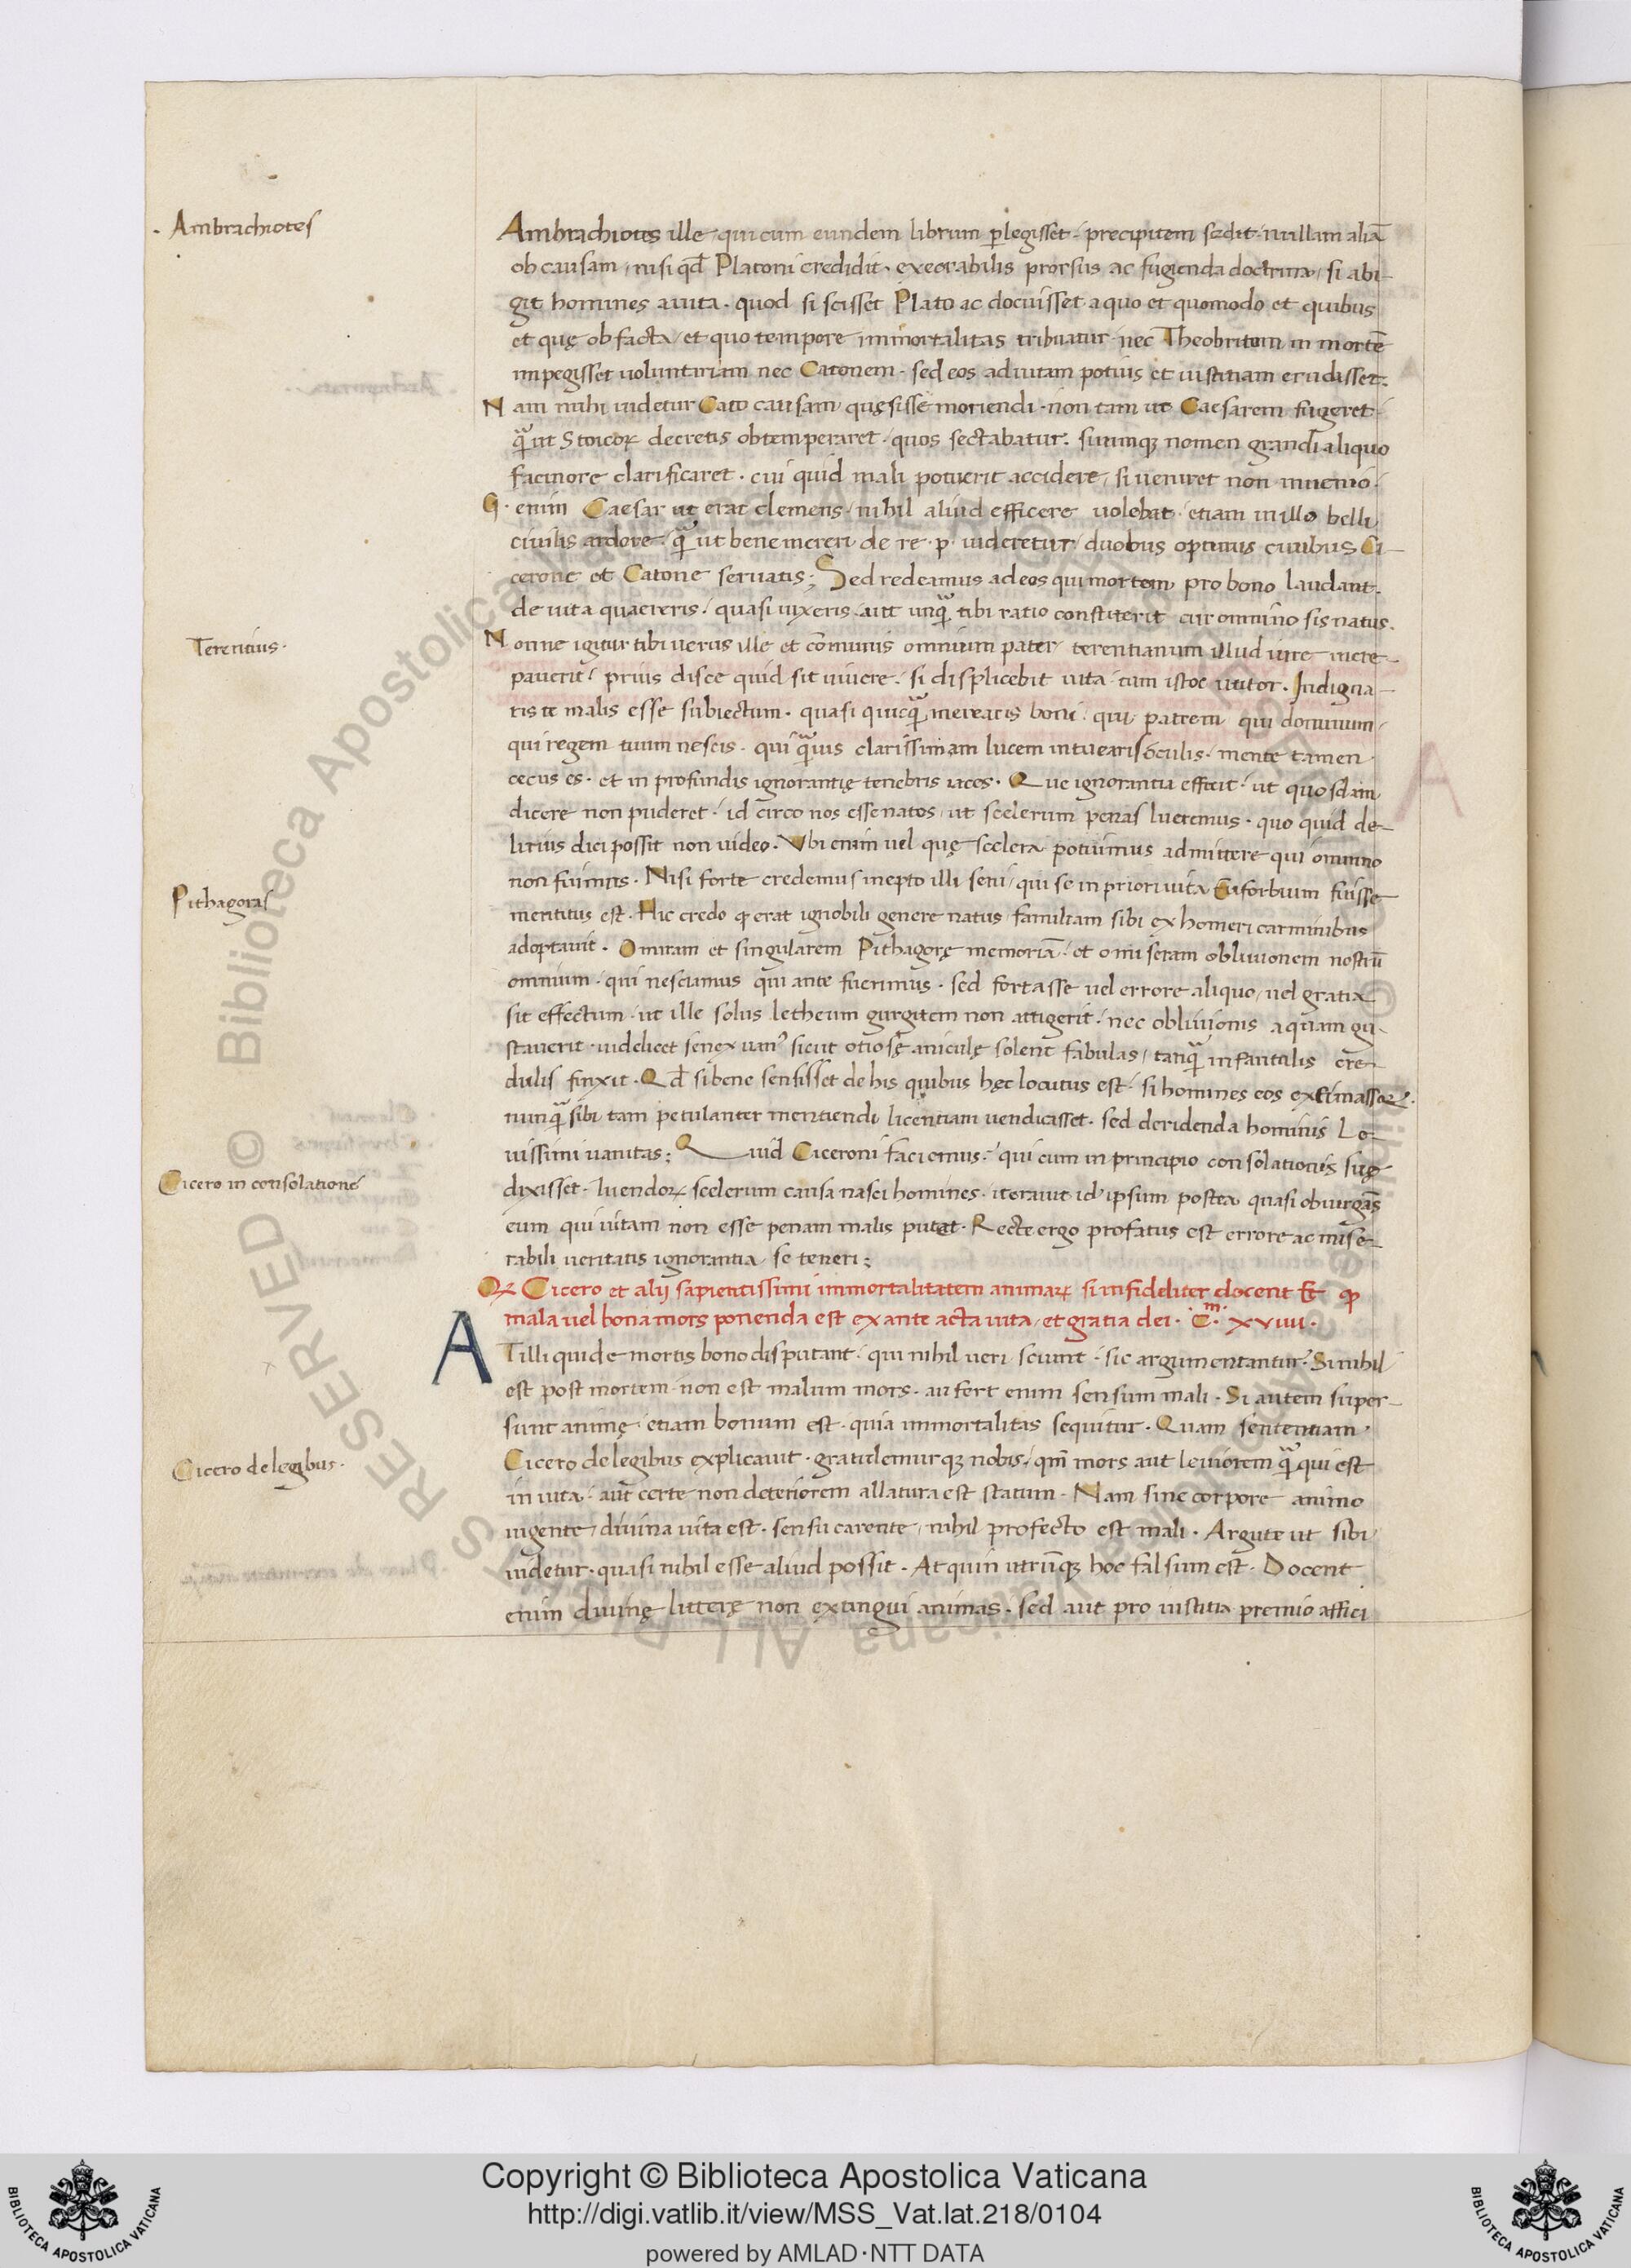 Ambrachiotes
Ambrachiotes ille qui cum eundem librum p̱legisset · precipitem se dedit · nullam aliā
ob causam, nisi qđ Platoni credidit · execrabilis prorsus ac fugienda doctrina, si abi-
git homines a uita · quod si scisset Plato ac docuisset a quo et quomodo et quibus
et quę ob facta, et quo tempore immortalitas tribuatur · nec Theobritum in mortē
impegisset uoluntariam nec Catonem · sed eos ad uitam potius et iustitiam erudisset.
Nam mihi uidetur Cato causam quęsisse moriendi · non tam ut Caesarem fugeret ·
q̃ ut Stoicoꝝ decretis obtemperaret · quos sectabatur · suumqꝫ nomen grandi aliquo
facinore clarificaret · cui quid mali potuerit accidere, si uiueret non inuenio ·
G · enim Caesar ut erat clemens · nihil aliud efficere uolebat · etiam in illo belli
ciuilis ardore · q̃ ut bene mereri de re · p · uideretur, duobus optimis ciuibus Ci-
cerone et Catone seruatis ; Sed redeamus ad eos qui mortem pro bono laudant ·
de uita quaereris · quasi uixeris · aut unq̃ tibi ratio constiterit cur omnino sis natus.
Terentius ·
Nonne igitur tibi uerus ille et cōmunis omnium pater, terentianum illud iure incre-
pauerit · prius disce quid sit uiuere · si displicebit uita · tum istoc utitor · Indigna-
ris te malis esse subiectum · quasi quicq̃ merearis boni · qui patrem qui dominum
qui regem tuum nescis · qui q̃uis clarissimam lucem intuearis oculis · mente tamen
cecus es · et in profundis ignorantię tenebris iaces · Que ignorantia effecit · ut quosdam
dicere non puderet · id circo nos esse natos, ut scelerum penas lueremus · quo quid de-
lirius dici possit non uideo. Vbi enim uel quę scelera potuimus admittere qui omnino
Pithagoras
non fuimus · Nisi forte credemus inepto illi seni, qui se in priori uita Euforbium fuisse
mentitus est · Hic credo ꝙ erat ignobili genere natus familiam sibi ex homeri carminibus
adoptauit · O miram et singularem Pithagorę memoriā · et o miseram obliuionem nostrū
omnium · qui nesciamus qui ante fuerimus · sed fortasse uel errore aliquo, uel gratia
sit effectum · ut ille solus letheum gurgitem non attigerit · nec obliuionis aquam gu-
stauerit · uidelicet senex uanꝰ sicut otiosę aniculę solent fabulas, tanq̃ infantulis cre-
dulis finxit · Qđ si bene sensisset de his quibus hęc locutus est · si homines eos extimasset ·
nunq̃ sibi tam petulanter mentiendi licentiam uendicasset · sed deridenda hominis Le-
uissimi uanitas ; Quid Ciceroni faciemus · qui cum in principio consolationis suę
Cicero in consolatione
dixisset · luendoꝝ scelerum causa nasci homines · iterauit id ipsum postea quasi obiurgās
eum qui uitam non esse penam malis putet · Recte ergo profatus est errore ac mise-
rabili ueritatis ignorantia, se teneri ;
Cicero et alij sapientissimi immortalitatem animaꝝ si infideliter docent ꝙ
mala uel bona mors ponenda est ex ante acta uita, et gratia dei · C.m xviiii ·
At illi qui de mortis bono disputant · qui nihil ueri sciunt · sic argumentantur · Si nihil
est post mortem · non est malum mors · aufert enim sensum mali · Si autem super-
sunt animę · etiam bonum est · quia immortalitas sequitur · Quam sententiam
Cicero de legibus ·
Cicero de legibus explicauit · gratulemurqꝫ nobis, qm̄ mors aut leuiorem q̃ qui est
in uita · aut certe non deteriorem allatura est statum · Nam sine corpore animo
uigente, diuina uita est · sensu carente, nihil profecto est mali · Argute ut sibi
uidetur · quasi nihil esse aliud possit · At quin utrūqꝫ hoc falsum est · Docent
enim diuinę litterę non extingui animas · sed aut pro iustitia premio affici
Copyright © Biblioteca Apostolica Vaticana
http://digi.vatlib.it/view/MSS_Vat.lat.218/0104
powered by AMLAD·NTT DATA
BIBLIOTECA APOSTOLICA VATICANA
BIBLIOTECA APOSTOLICA VATICANA